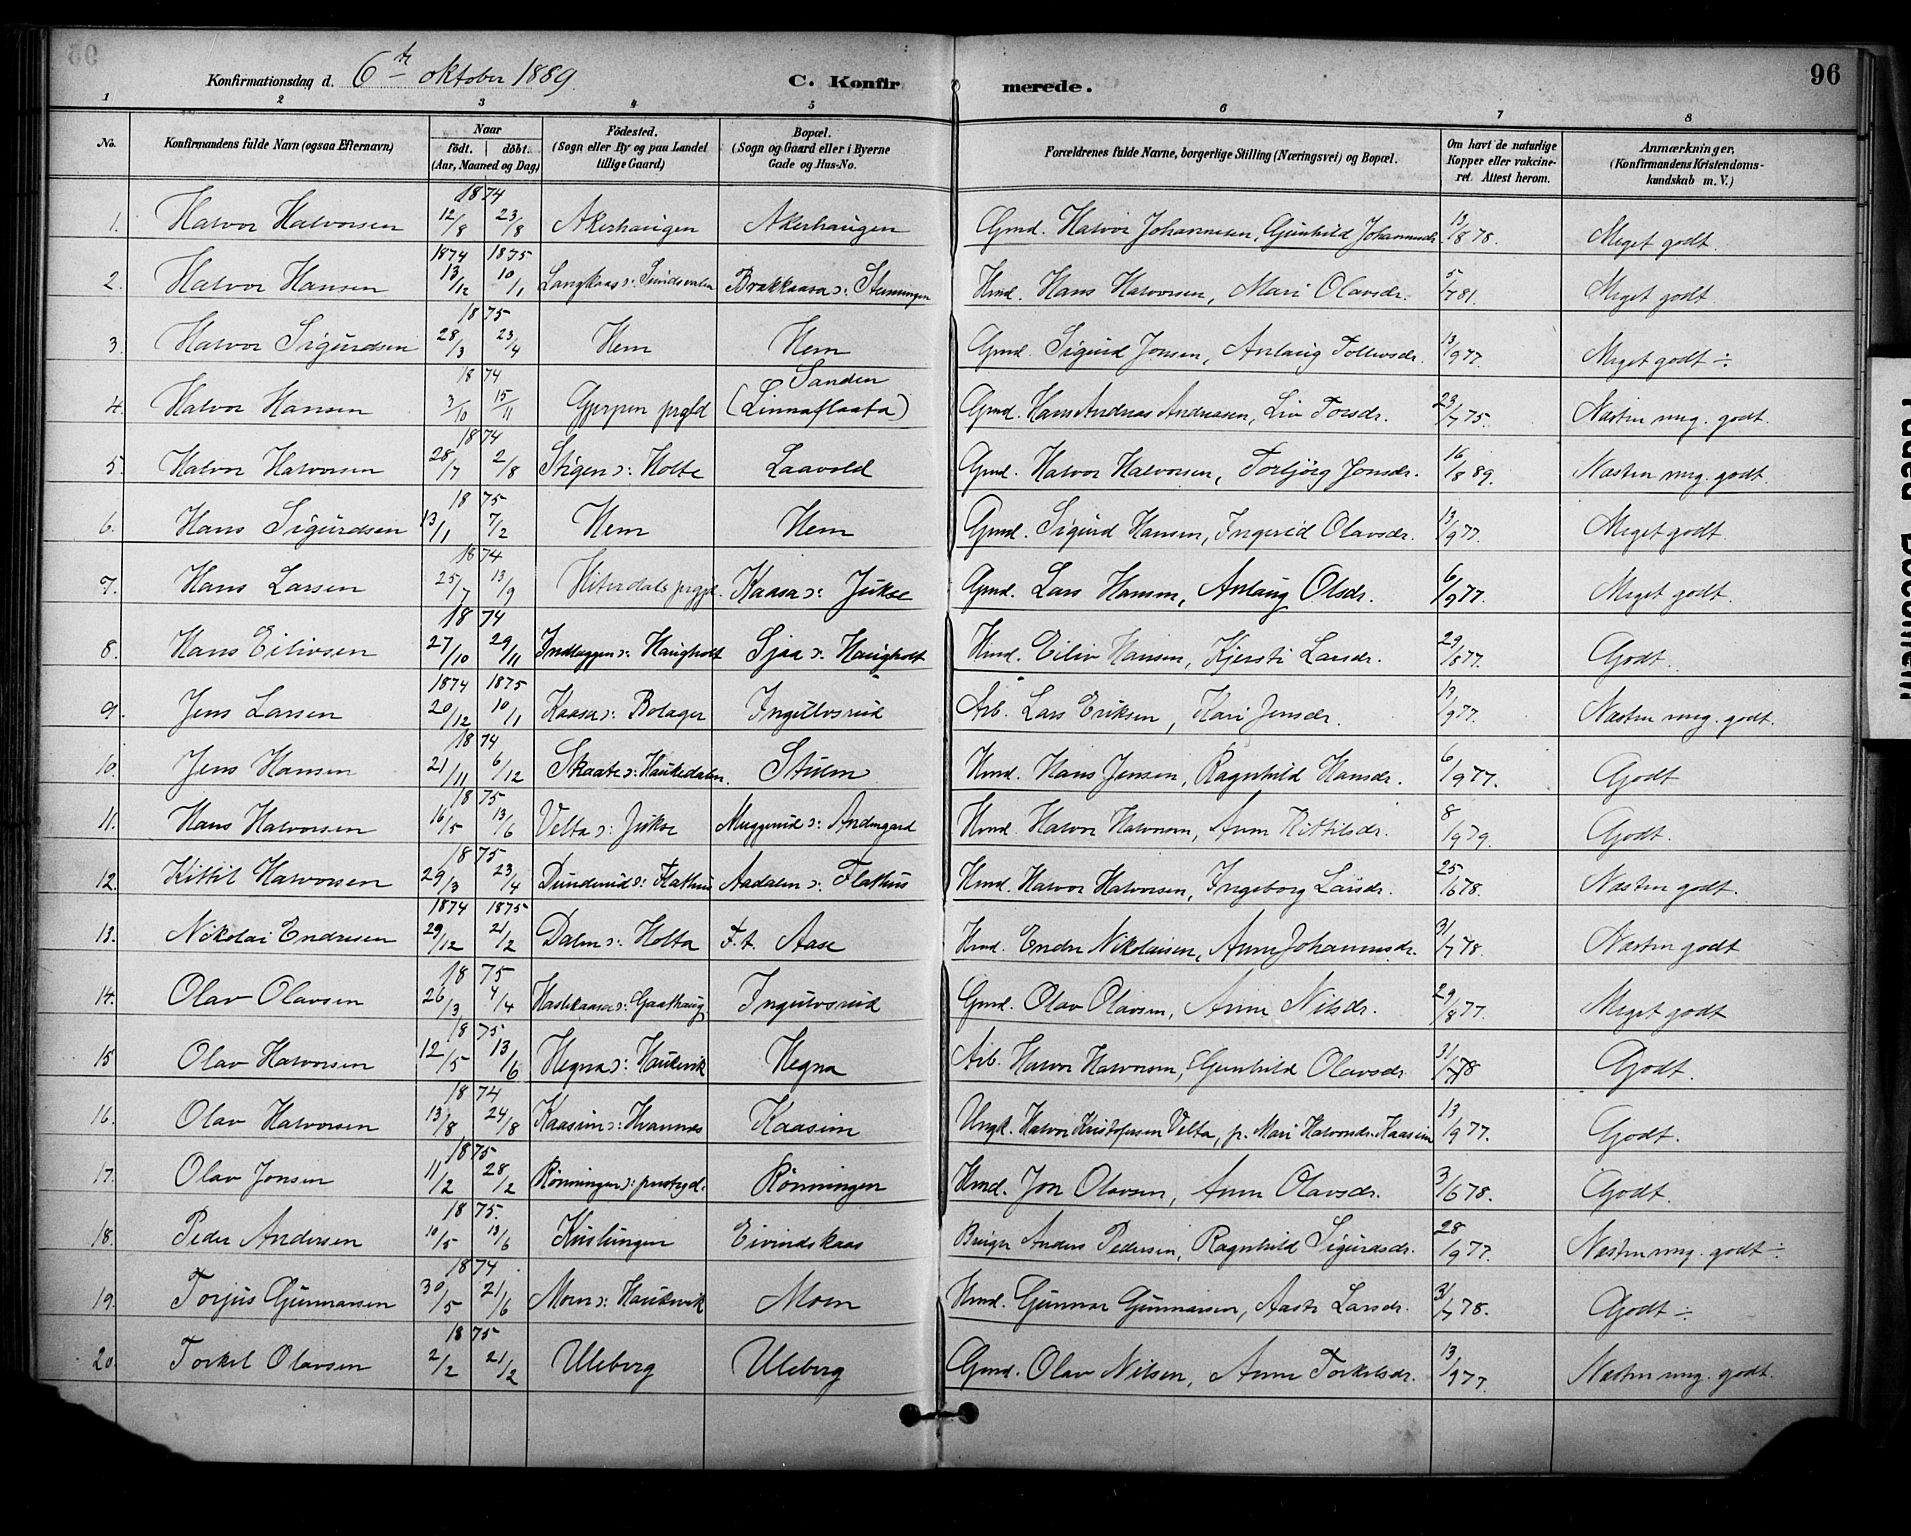 Konfirmationsdag d. 6te oktober 1889. C. Konfir merede. 96
1 2 3 4 5 6 7 8
No. Konfirmandens fulde Navn (ogsaa Efternavn) Naar født. døbt. (Aar, Maaned og Dag) Födested. (Sogn eller By og paa Landet tillige Gaard) Bopæl. (Sogn og Gaard eller i Byerne Gade og Hus-No. Forældrenes fulde Navne, borgerlige Stilling (Næringsvei) og Bopæl. Om havt de naturlige Kopper eller vakcineret. Attest herom. Anmærkninger, (Konfirmandens Kristendomskundskab m. V.)
1. Halvor Halvorsen 1874 12/8 23/8 Akerhaugen Akerhaugen Gmd. Halvor Johannesen, Gunhild Johannesdr. 13/8 78. Meget godt.
2. Halvor Hansen 1874 13/12 1875 10/1 Langkaas ɔ: Brekkaasa ɔ: Hmd. Hans Halvorsen, Mari Olavsdr. 5/7 81. Meget godt
3. Halvor Sigurdsen 1875 28/3 23/4 Hem Hem Gmd. Sigurd Jonsen, Anlaug Tollevsdr. 13/9 77. Meget godt ÷
4. Halvor Hansen 1874 3/10 15/11 Gjerpen prgld Sanden (Linnaflaata) Gmd. Hans Andreas Andreasen, Liv Torsdr. 23/7 75. Næsten mg. godt.
5. Halvor Halvorsen 1874 28/7 2/8 Stigen ɔ: Holte Laavold Gmd. Halvor Halvorsen, Torbjörg Jonsdr. 16/8 89. Næsten mg. godt.
6. Hans Sigurdsen 1875 13/1 7/2 Hem Hem Gmd. Sigurd Hansen, Ingerid Olavsdr. 13/9 77. Meget godt
7. Hans Larsen 1874 25/7 13/9 Hiterdals prgjd. Kaasa ɔ: Jukse Gmd. Lars Hansen, Anlaug Olsdr. 6/9 77. Meget godt.
8. Hans Eilivsen 1874 27/10 29/11 Indlæggen ɔ: Haugholt Sjaa ɔ: Haugholt Hmd. Eiliv Hansen, Kjersti Larsdr. 29/8 77. Godt.
9. Jens Larsen 1874 20/12 1875 10/1 Kaasa ɔ: Bolager Ingulvsrud Arb. Lars Eriksen, Kari Jensdr. 13/9 77. Næsten mg. godt.
10. Jens Hansen 1874 21/11 6/12 Skaate ɔ: Haukedalen. Stulen Hmd. Hans Jensen, Ragnhild Hansdr. 6/9 77. Godt
11. Hans Halvorsen 1875 16/5 13/6 Velta ɔ: Jukse Muggerud ɔ: Andergard Hmd. Halvor Halvorsen, Anne Kittilsdr. 8/9 79. Godt.
12. Kittil Halvorsen 1875 29/3 23/4 Dunderud ɔ: Flathus Aadalen ɔ: Flathus Hmd. Halvor Halvorsen, Ingeborg Larsdr. 25/6 78. Næsten godt.
13. Nikolai Endresen 1874 29/12 1875 21/2 Dalen ɔ: Holta F.t. Aase Hmd. Endre Nikolaisen, Anne Johannesdr. 31/7 78. Næsten godt
14. Olav Olavsen 1875 26/3 4/4 ɔ: Gaathaug Ingulvsrud Gmd. Olav Olavsen, Anne Nilsdr. 29/8 77. Meget godt
15 Olav Halvorsen 1875 12/5 13/6 Hegna ɔ: Haukvik Hegna Arb. Halvor Halvorsen, Gunhild Olavsdr. 31/7 78 Godt.
16. Olav Halvorsen 1874 13/8 24/8 Kaasim ɔ: Hvannes Kaasim Ungk. Halvor Kristofersen Velta, p. Mari Halvorsdr. Kaasim 13/9 77. Godt.
17. Olav Jonsen 1875 11/2 28/2 Rönningen ɔ: prestegd. Rönningen Hmd. Jon Olavsen, Anne Olavsdr. 3/6 78. Godt.
18. Peder Andersen 1875. 10/5 13/6 Eivindskaas Anders Pedersen, Ragnhild Sigurdsdr. 28/9 77. Næsten mg. godt ÷
19. Torjus Gunnarsen 1874. 30/5 21/6 Moen ɔ: Haukvik Moen Hmd. Gunnar Gunnarsen, Aaste Larsdr. 31/7 78. Godt ÷
20 Torkel Olavsen 1875 2/2 21/2 Uleberg Uleberg Gmd. Olav Nilsen, Anne Torkelsdr. 13/9 77. Næsten mg. godt.